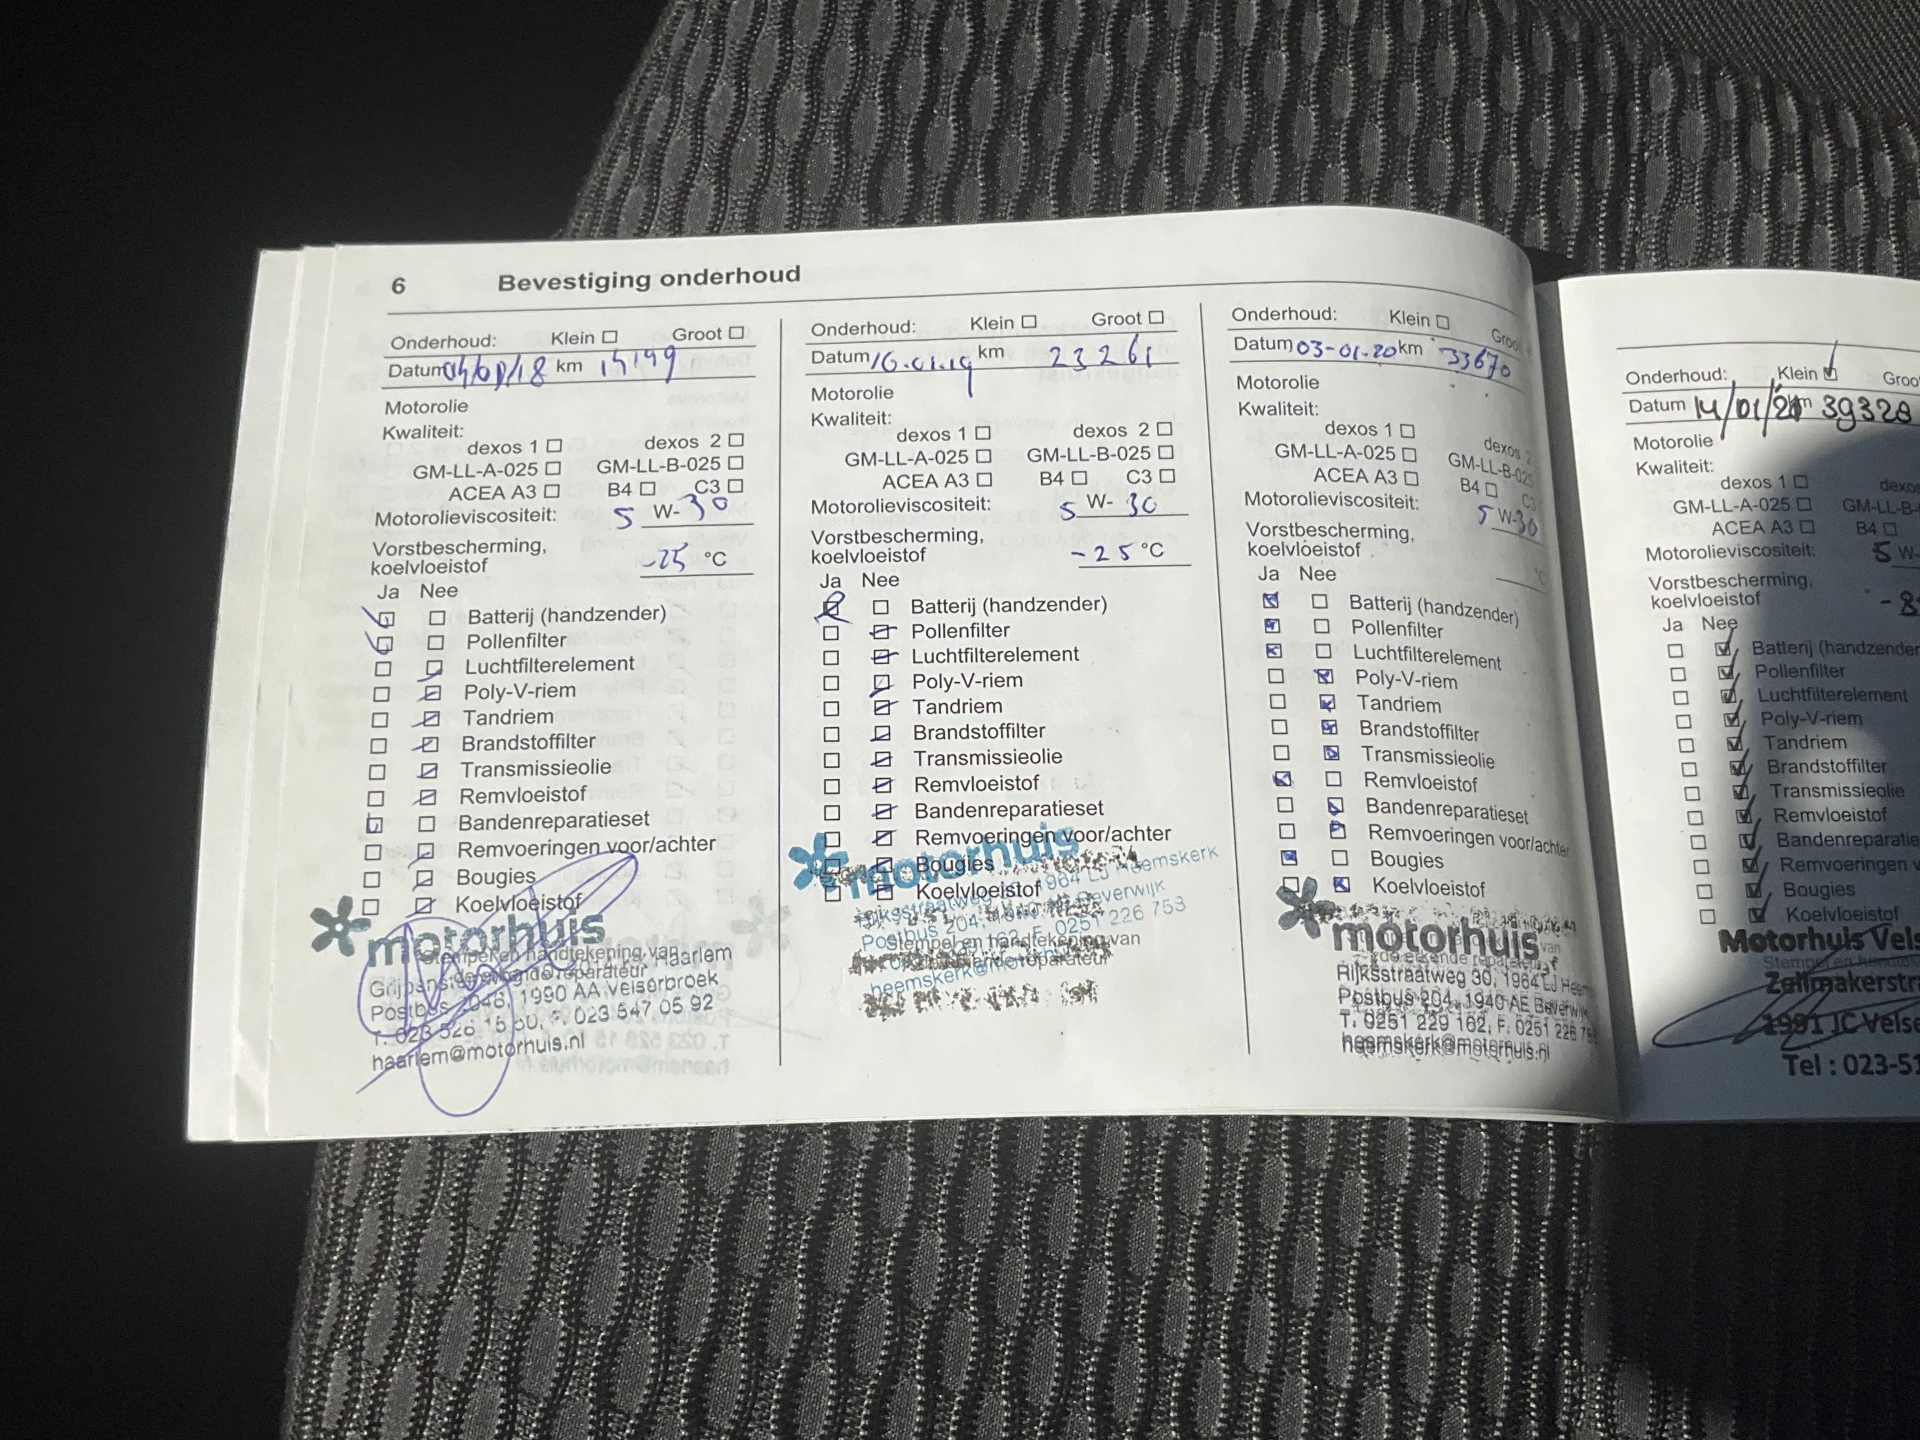 6 Bevestiging onderhoud
Onderhoud: Klein Groot
Datum km
Motorolie
Kwaliteit:
dexos 1 dexos 2
GM-LL-A-025 GM-LL-B-025
ACEA A3 B4 C3
Motorolieviscositeit: 5 W- 30
Vorstbescherming,
koelvloeistof -25 °C
Ja Nee
Batterij (handzender)
Pollenfilter
Luchtfilterelement
Poly-V-riem
Tandriem
Brandstoffilter
Transmissieolie
Remvloeistof
Bandenreparatieset
Remvoeringen voor/achter
Bougies
Koelvloeistof
motorhuis
Stempel en handtekening van
Haarlem
Postbus 2046, 1990 AA Velserbroek
F. 023 547 05 92
haarlem@motorhuis.nl
Onderhoud: Klein Groot
Datum 16.01.19 km 23261
Motorolie
Kwaliteit:
dexos 1 dexos 2
GM-LL-A-025 GM-LL-B-025
ACEA A3 B4 C3
Motorolieviscositeit: 5 W- 30
Vorstbescherming,
koelvloeistof -25 °C
Ja Nee
Batterij (handzender)
Pollenfilter
Luchtfilterelement
Poly-V-riem
Tandriem
Brandstoffilter
Transmissieolie
Remvloeistof
Bandenreparatieset
Remvoeringen voor/achter
Bougies
Koelvloeistof
motorhuis
1964 LJ Heemskerk
Postbus 204, Beverwijk
F. 0251 226 753
Stempel en handtekening van
Onderhoud: Klein Groo
Datum 03-01-20 km 33670
Motorolie
Kwaliteit:
dexos 1 dexos 2
GM-LL-A-025 GM-LL-B-025
ACEA A3 B4 C3
Motorolieviscositeit: 5 W-30
Vorstbescherming,
koelvloeistof °C
Ja Nee
Batterij (handzender)
Pollenfilter
Luchtfilterelement
Poly-V-riem
Tandriem
Brandstoffilter
Transmissieolie
Remvloeistof
Bandenreparatieset
Remvoeringen voor/achter
Bougies
Koelvloeistof
motorhuis
Rijksstraatweg 30, 1964 LJ Heem
Postbus 204, 1940 AE Beverwijk
T. 0251 229 162, F. 0251 226
heemskerk@motorhuis.nl
Onderhoud: Klein Groo
Datum 14/01/21 km 39328
Motorolie
Kwaliteit:
dexos 1 dexos
GM-LL-A-025 GM-LL-B-
ACEA A3 B4
Motorolieviscositeit: 5 W-
Vorstbescherming,
koelvloeistof
Ja Nee
Batterij (handzender
Pollenfilter
Luchtfilterelement
Poly-V-riem
Tandriem
Brandstoffilter
Transmissieolie
Remvloeistof
Bandenreparatie
Remvoeringen v
Bougies
Koelvloeistof
Motorhuis Vels
Zeilmakerstra
1991 JC Velse
Tel : 023-51